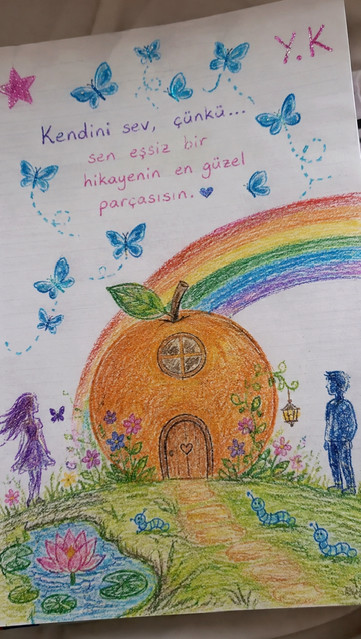 Y.K
Kendini sev, çünkü...
sen eşsiz bir
hikayenin en güzel
parçasısın.